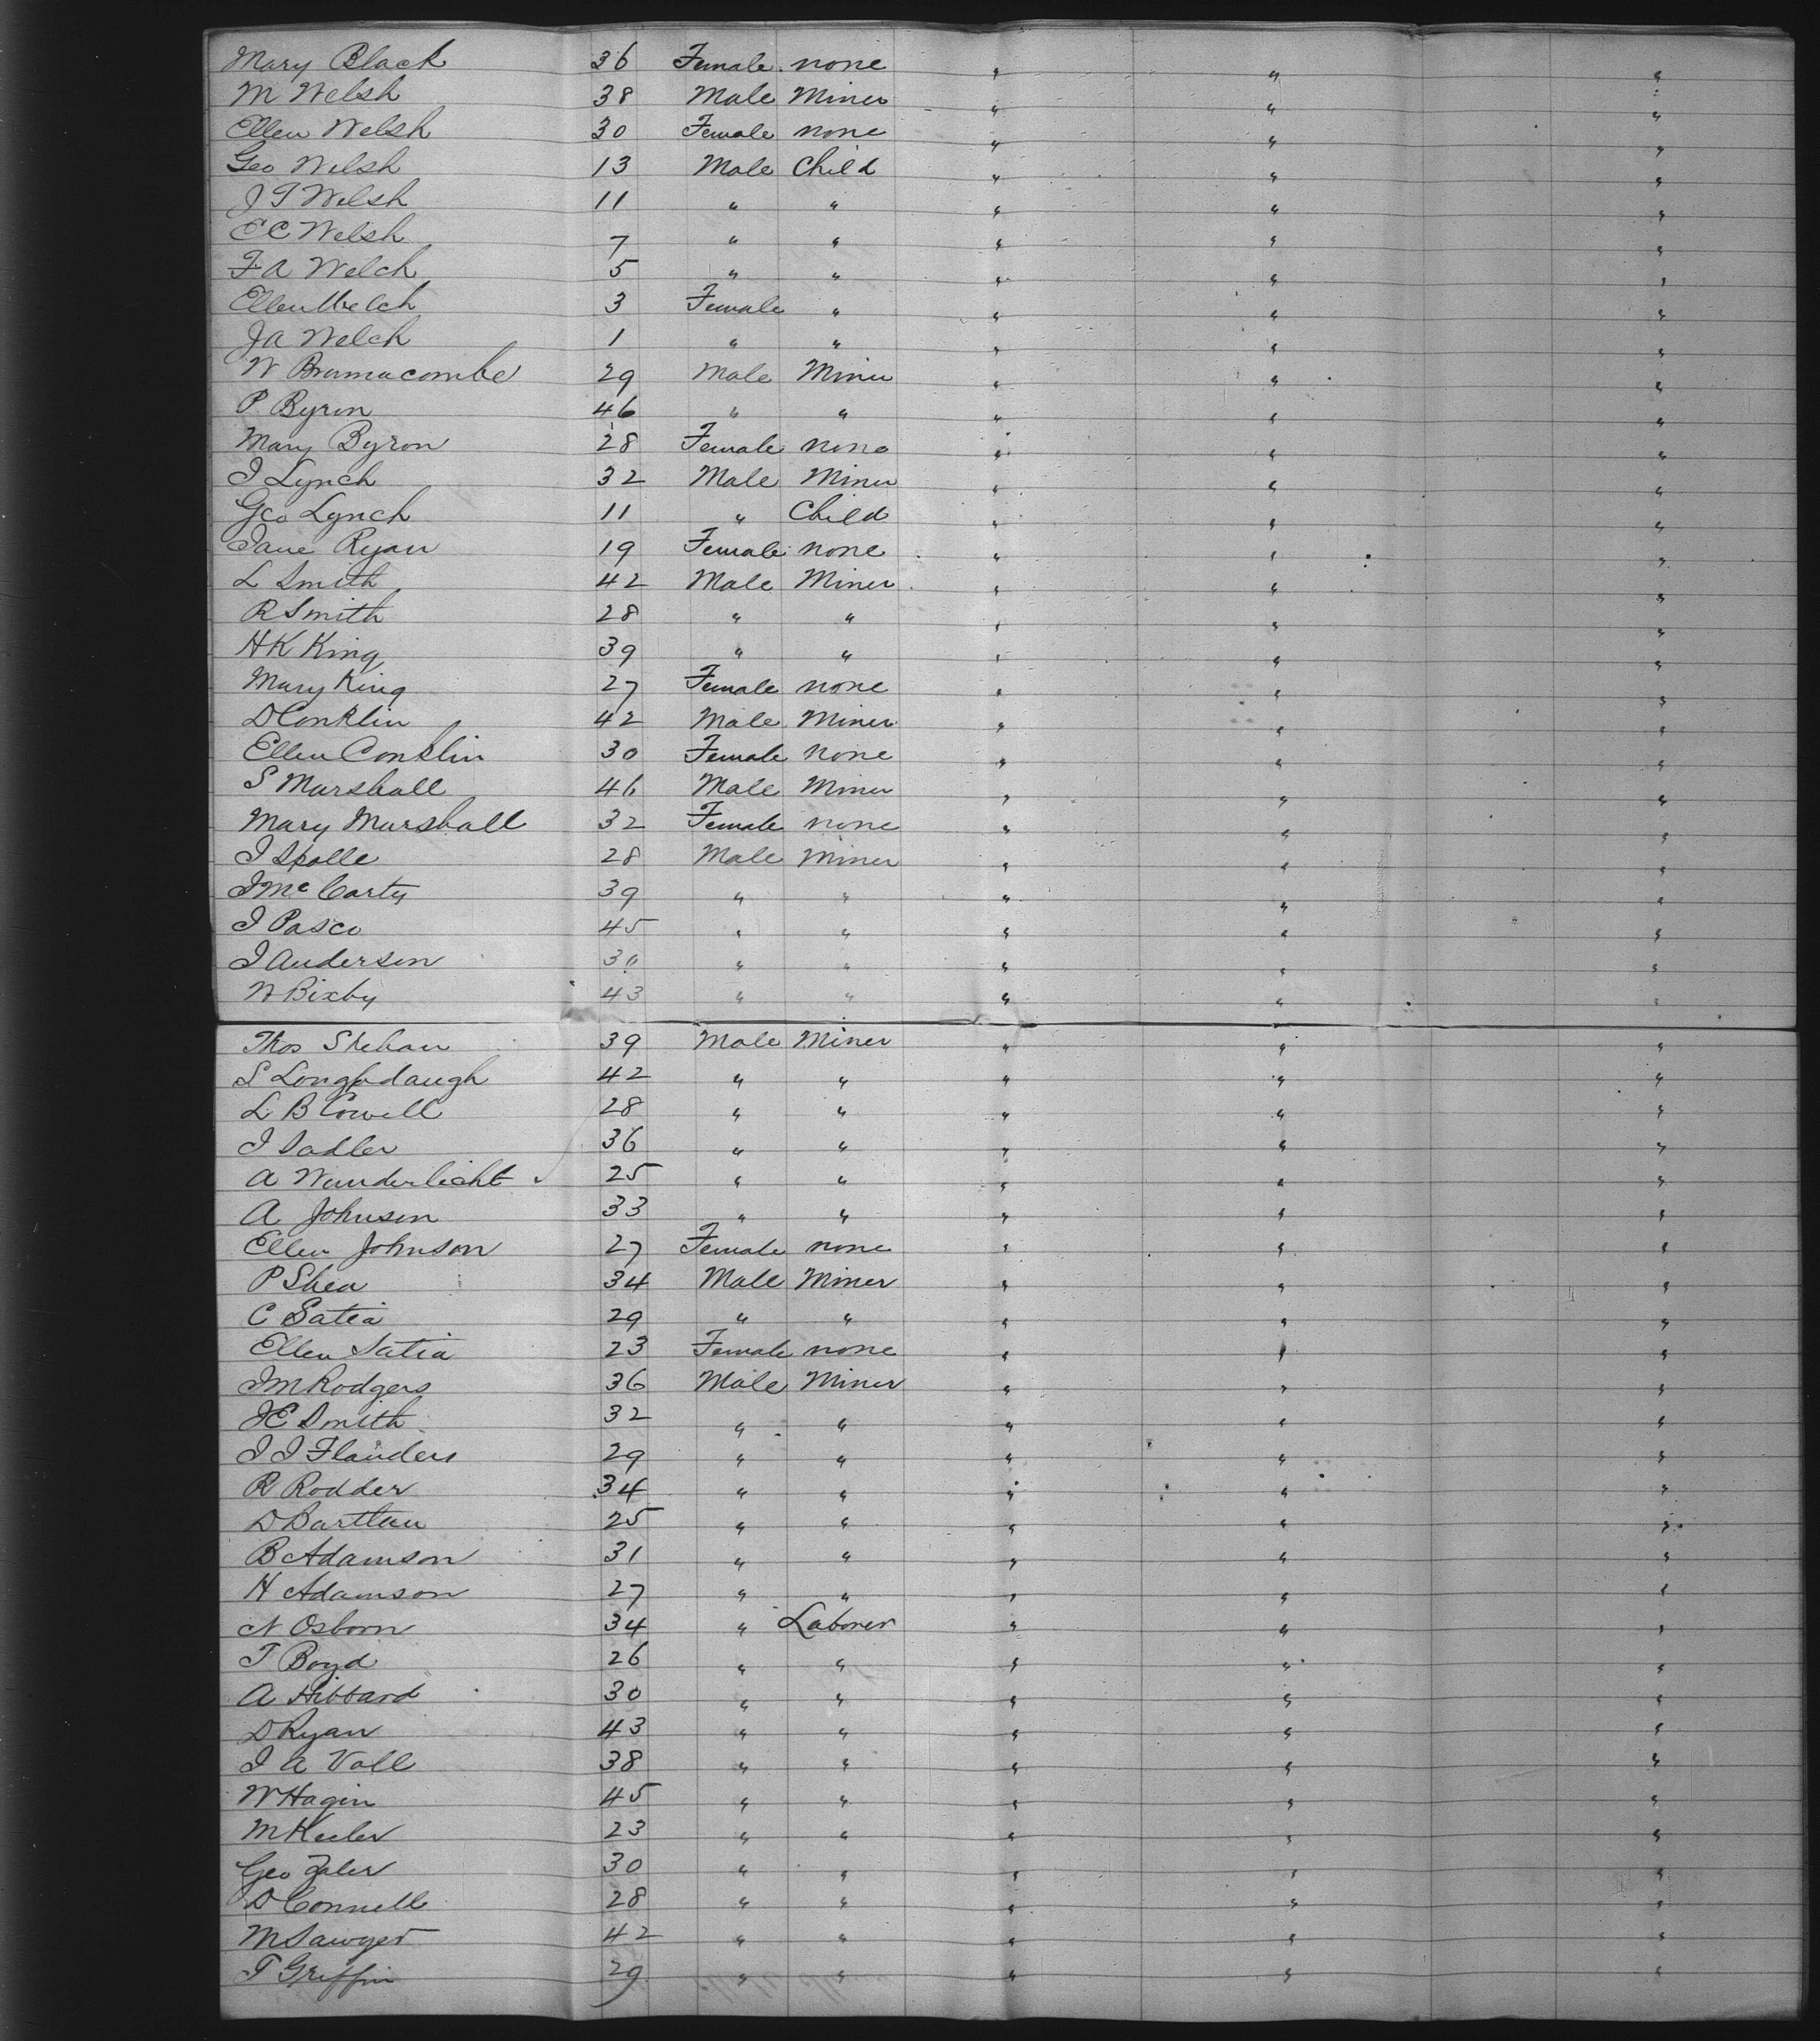 Mary Black 36 Female none " " "
M Welsh 38 Male Miner " " "
Ellen Welsh 30 Female none " " "
Geo Welsh 13 Male Child " " "
J T Welsh 11 " " " " "
E C Welsh 7 " " " " "
F A Welch 5 " " " " "
Ellen Welch 3 Female " " " "
J A Welch 1 " " " " "
W Brumacombe 29 Male Miner " " "
P. Byron 46 " " " " "
Mary Byron 28 Female none " " "
J Lynch 32 Male Miner " " "
Geo Lynch 11 " Child " " "
Jane Ryan 19 Female none " " "
L Smith 42 Male Miner " " "
R Smith 28 " " " " "
H K King 39 " " " " "
Mary King 27 Female none " " "
D Conklin 42 Male Miner " " "
Ellen Conklin 30 Female none " " "
S Marshall 46 Male Miner " " "
Mary Marshall 32 Female none " " "
J Spolle 28 Male Miner " " "
J McCarty 39 " " " " "
J Pasco 45 " " " " "
J Anderson 30 " " " " "
W Bixby 43 " " " " "
Thos Shehan 39 Male Miner " " "
S 42 " " " " "
L B Cowell 28 " " " " "
J Sadler 36 " " " " "
A Wunderlicht 25 " " " " "
A Johnson 33 " " " " "
Ellen Johnson 27 Female none " " "
P Shea 34 Male Miner " " "
C Satia 29 " " " " "
Ellen Satia 23 Female none " " "
J M Rodgers 36 Male Miner " " "
J E Smith 32 " " " " "
J J Flanders 29 " " " " "
R Rodder 34 " " " " "
D Bartlau 25 " " " " "
B Adamson 31 " " " " "
H Adamson 27 " " " " "
N Osborn 34 " Laborer " " "
T Boyd 26 " " " " "
A Hibbard 30 " " " " "
D Ryan 43 " " " " "
J A Vall 38 " " " " "
W Hagin 45 " " " " "
M Keeler 23 " " " " "
Geo Zaler 30 " " " " "
D Connell 28 " " " " "
M Sawyer 42 " " " " "
T Griffin 29 " " " " "